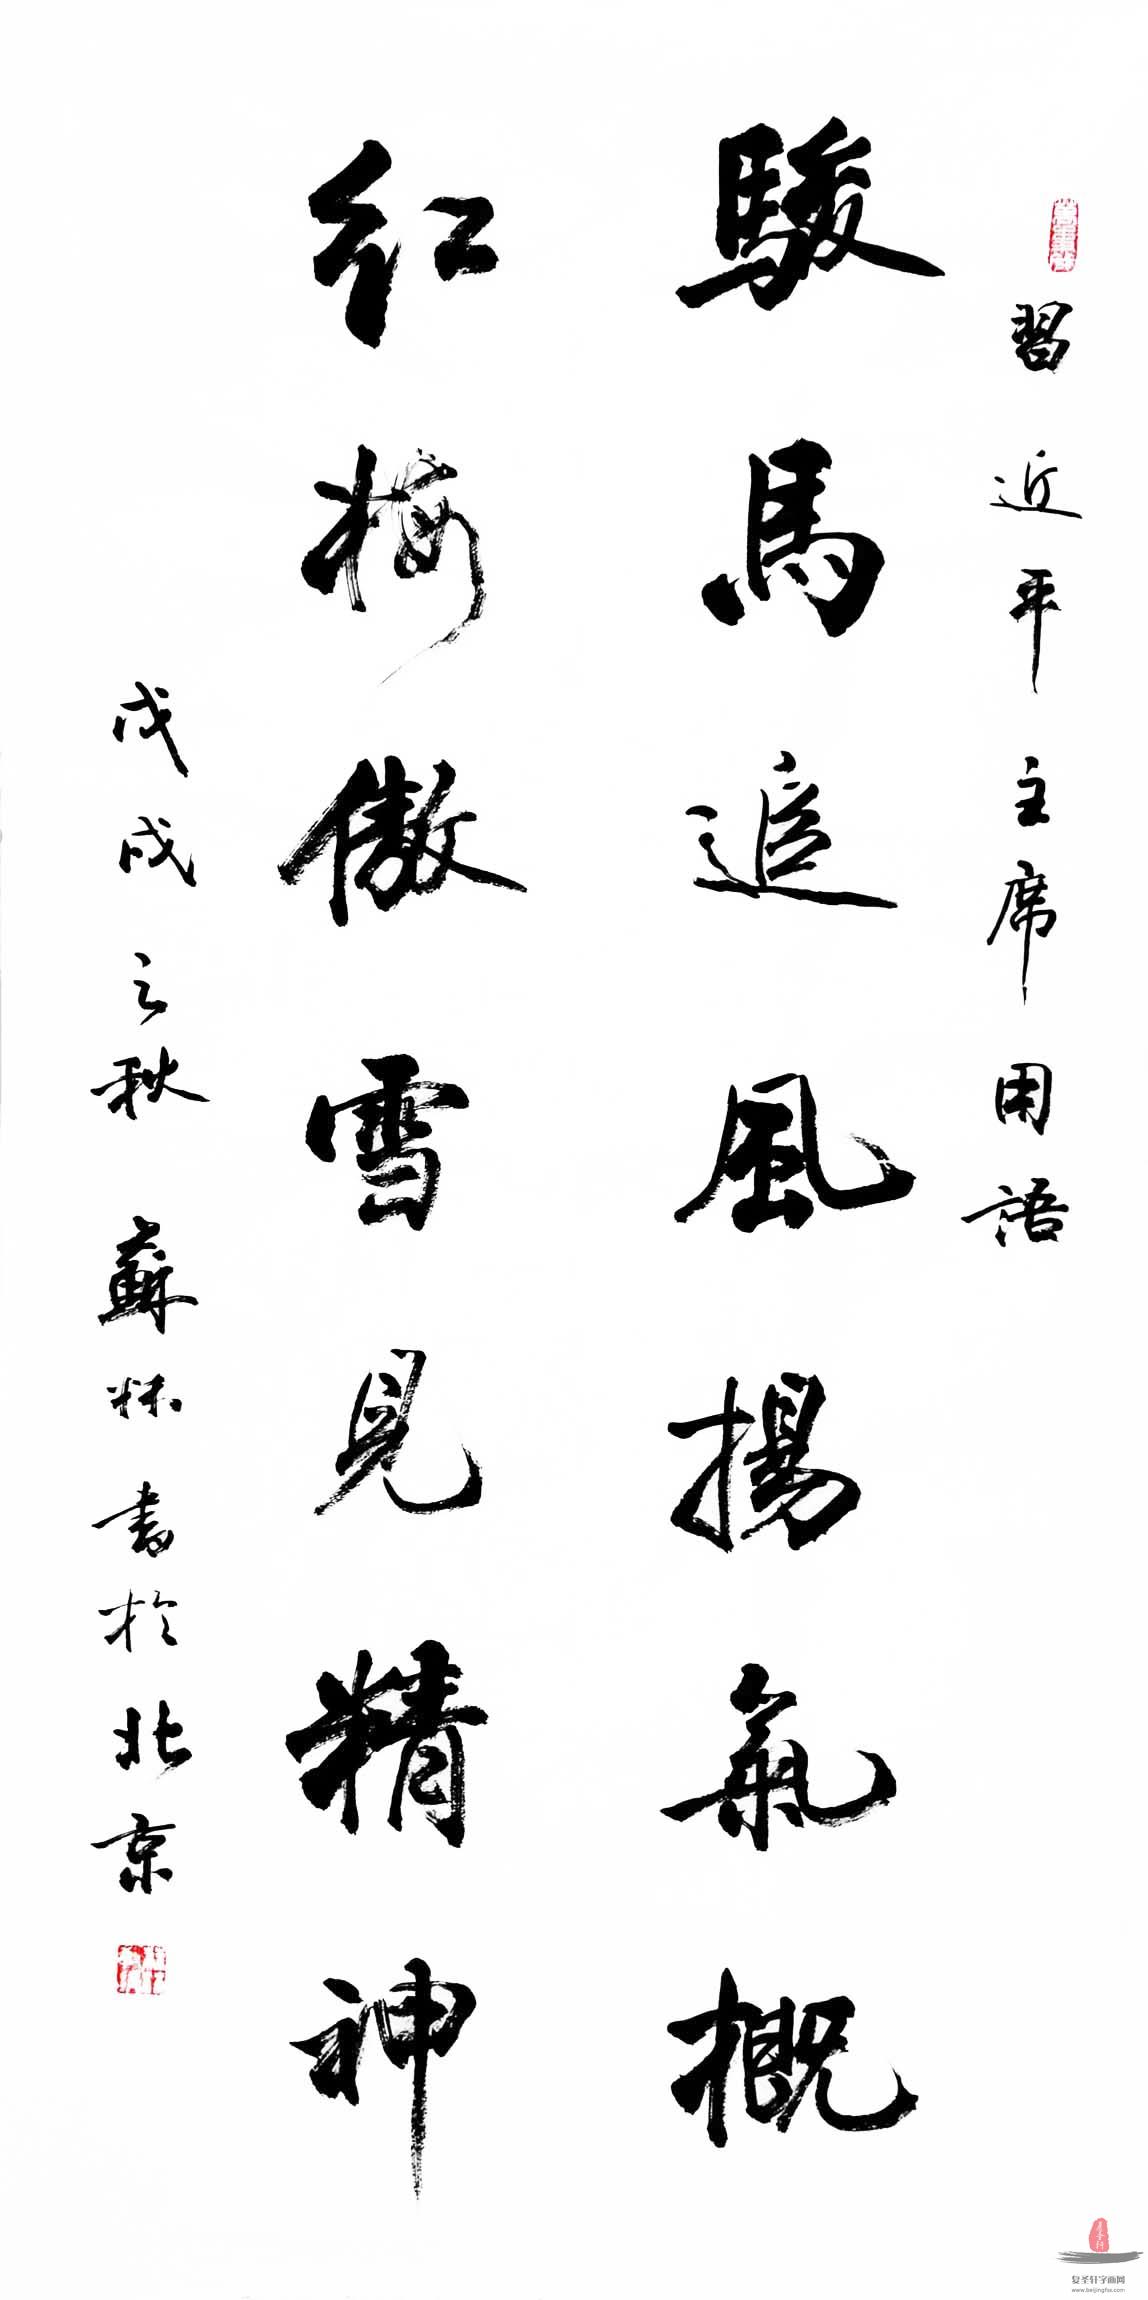 習近平主席用語
駿馬追風揚氣概
红梅傲雪見精神
戊戌之秋 蘇林書於北京
复圣轩字画网
www.beijingfsx.com